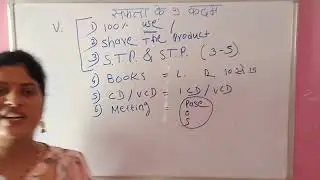 सफलता के 9 कदम
V. 1) 100% use
2) Share The Product
3) S.T.P. & S.T.P. (3-5)
4) BOOKS = L. R 10 से 15
5) CD/VCD = 1 CD/VCD
6) Metting =